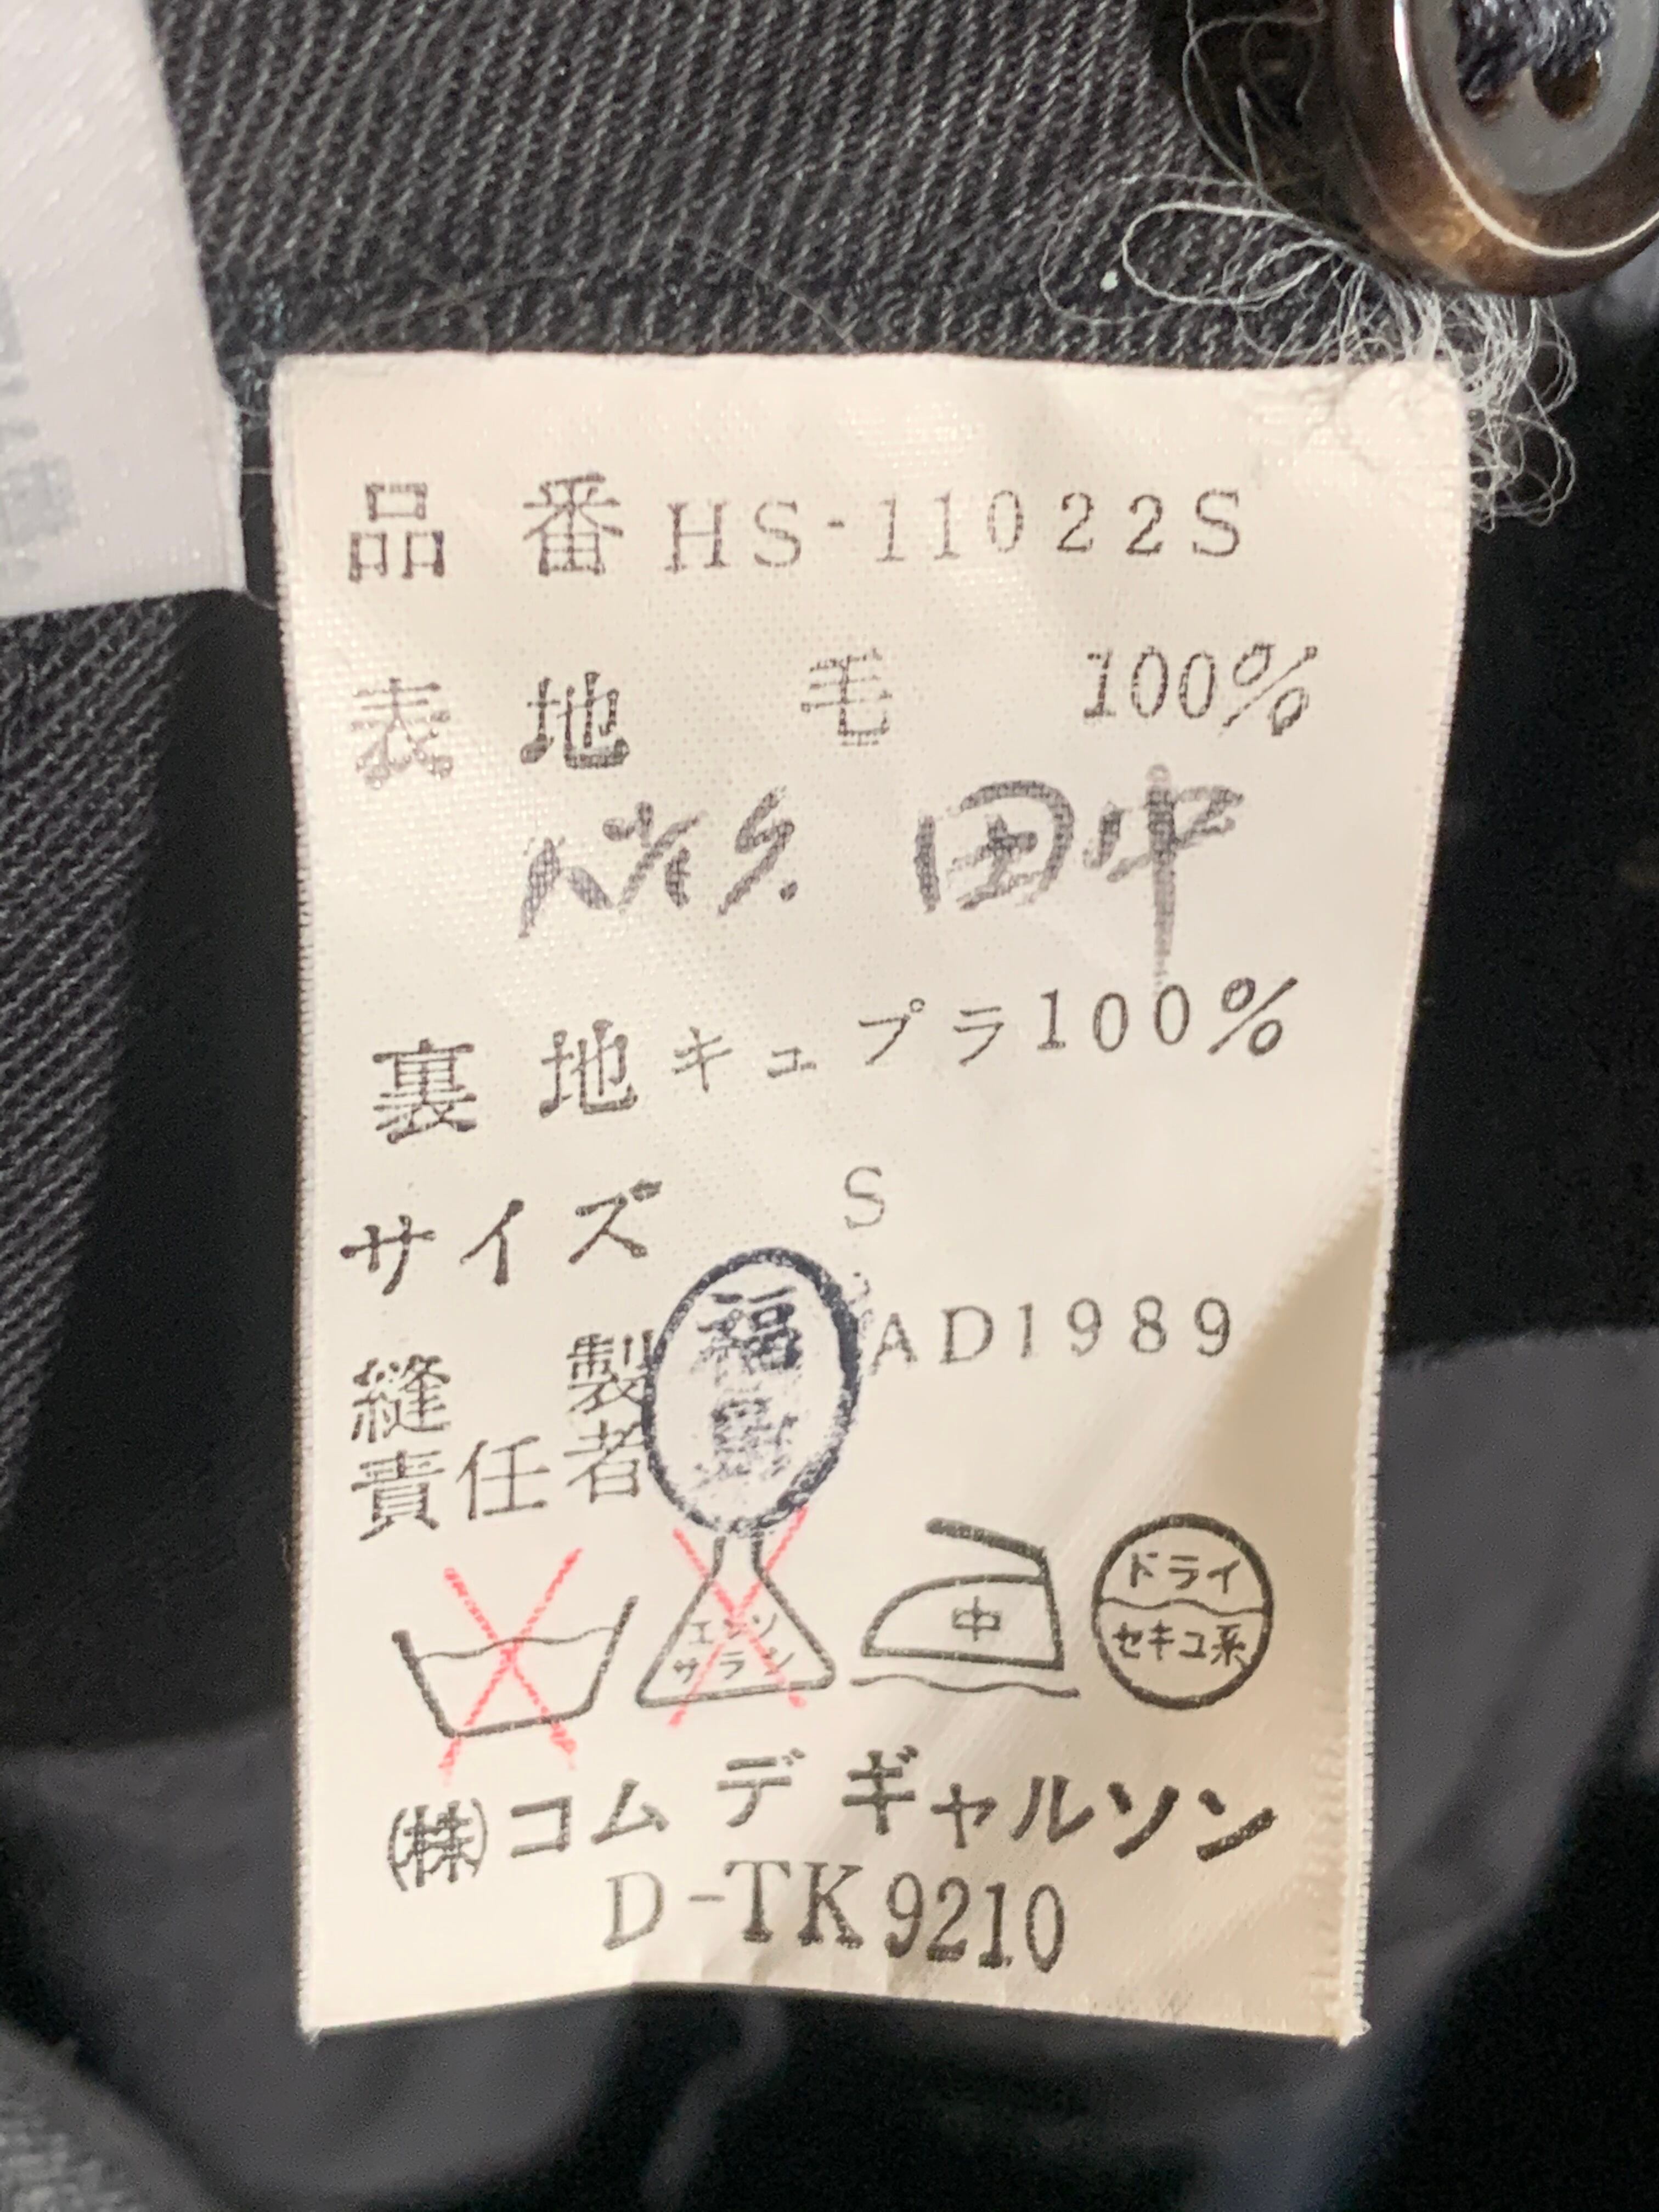 品番 HS-11022S
表地 毛 100%
田中
裏地 キュプラ 100%
サイズ S
縫製 AD1989
責任者
福
エンソ サラシ
中
ドライ
セキユ系
㈱コムデギャルソン
D-TK9210